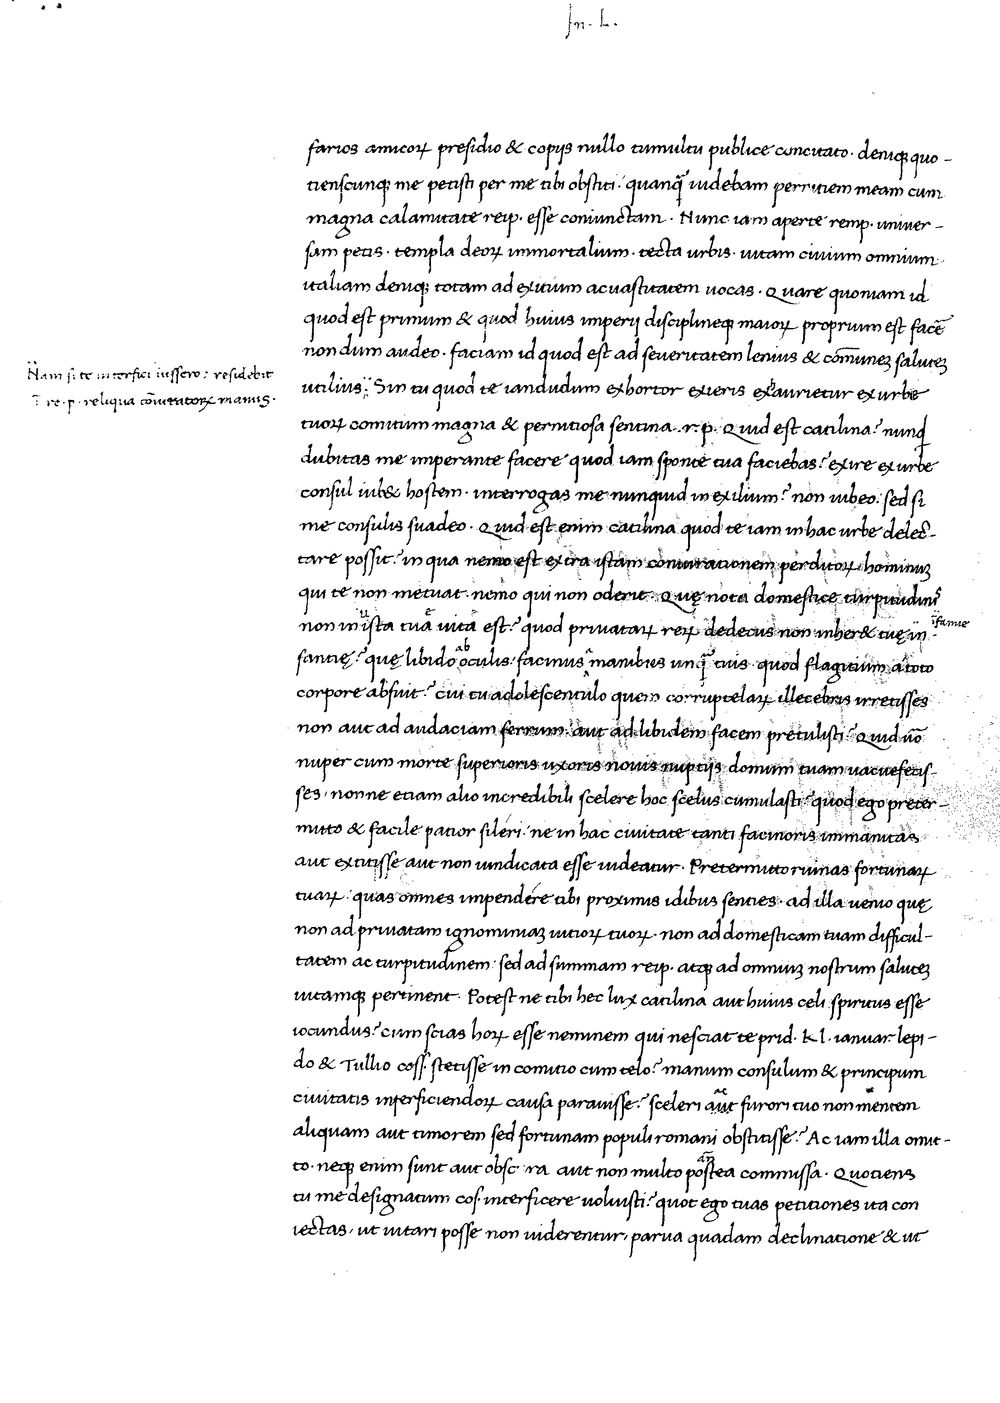 In. L.
farios amicoꝝ presidio & copijs nullo tumultu publice concitato. deniqꝫ quo-
tienscunqꝫ me petisti per me tibi obstiti. quanq̃ uidebam pernitiem meam cum
magna calamitate reip. esse coniunctam. Nunc iam aperte remp. uniuer-
sam petis. templa deoꝝ immortalium. tecta urbis. uitam ciuium omnium
italiam deniqꝫ totam ad exitium ac uastitatem uocas. Quare quoniam id
quod est primum & quod huius imperij disciplineqꝫ maioꝝ proprium est facẽ
non dum audeo. faciam id quod est ad seueritatem lenius & cõmuneꝫ saluteꝫ
Nam si te interfici iussero: residebit
ĩ re.p. reliqua cõiuratoꝝ manus.
utilius. Sin tu quod te iandudum exhortor exieris exaurietur ex urbe
tuoꝝ comitum magna & pernitiosa sentina .r.p. Quid est catilina? nunq̃
dubitas me imperante facere quod iam sponte tua faciebas? exire ex urbe
consul iub& hostem. interrogas me nunquid in exilium? non iubeo. sed si
me consulis suadeo. Quid est enim catilina quod te iam in hac urbe delec-
tare possit? in qua nemo est extra istam coniurationem perditoꝝ hominuꝫ
qui te non metuat. nemo qui non oderit. Quę nota domestice turpitudinis
non in ista tua uita est? quod priuataꝝ reꝝ dedecus non inher& tuę in
ĩfamie
fantię? quę libido ab oculis. facinus manibus unq̃ tuis. quod flagitium a toto
corpore absuit? cui tu adolescentulo quem corruptelaꝝ illecebris irretisses
non aut ad audaciam ferrum. aut ad libidem facem pretulisti? Quid uõ
nuper cum morte superioris uxoris nouis nuptijs domum tuam uacuefecis-
ses. nonne etiam alio incredibili scelere hoc scelus cumulasti? quod ego preter-
mitto & facile patior sileri. ne in hac ciuitate tanti facinoris immanitas
aut extitisse aut non uindicata esse uideatur. Pretermitto ruinas fortunaꝝ
tuaꝝ. quas omnes impendere tibi proximis idibus senties. ad illa uenio quę
non ad priuatam ignominiaꝫ uitioꝝ tuoꝝ. non ad domesticam tuam difficul-
tatem ac turpitudinem. sed ad summam reip. atqꝫ ad omniuꝫ nostrum saluteꝫ
uitamqꝫ pertinent. Potest ne tibi hec lux catilina aut huius celi spiritus esse
iocundus? cum scias hoꝝ esse neminem qui nesciat te prid. Kl. ianuar. lepi-
do & Tullio coss. stetisse in comitio cum telo? manum consulum & principum
ciuitatis interficiendoꝝ causa parauisse? sceleri aut furori tuo non mentem
aliquam aut timorem sed fortunam populi romani obstitisse? Ac iam illa omit-
to. neqꝫ enim sunt aut obsc ra aut non multo postea commissa. Quotiens
tu me designatum cos. interficere uoluisti? quot ego tuas petitiones ita con
iectas. ut uitari posse non uiderentur, parua quadam declinatione & ut